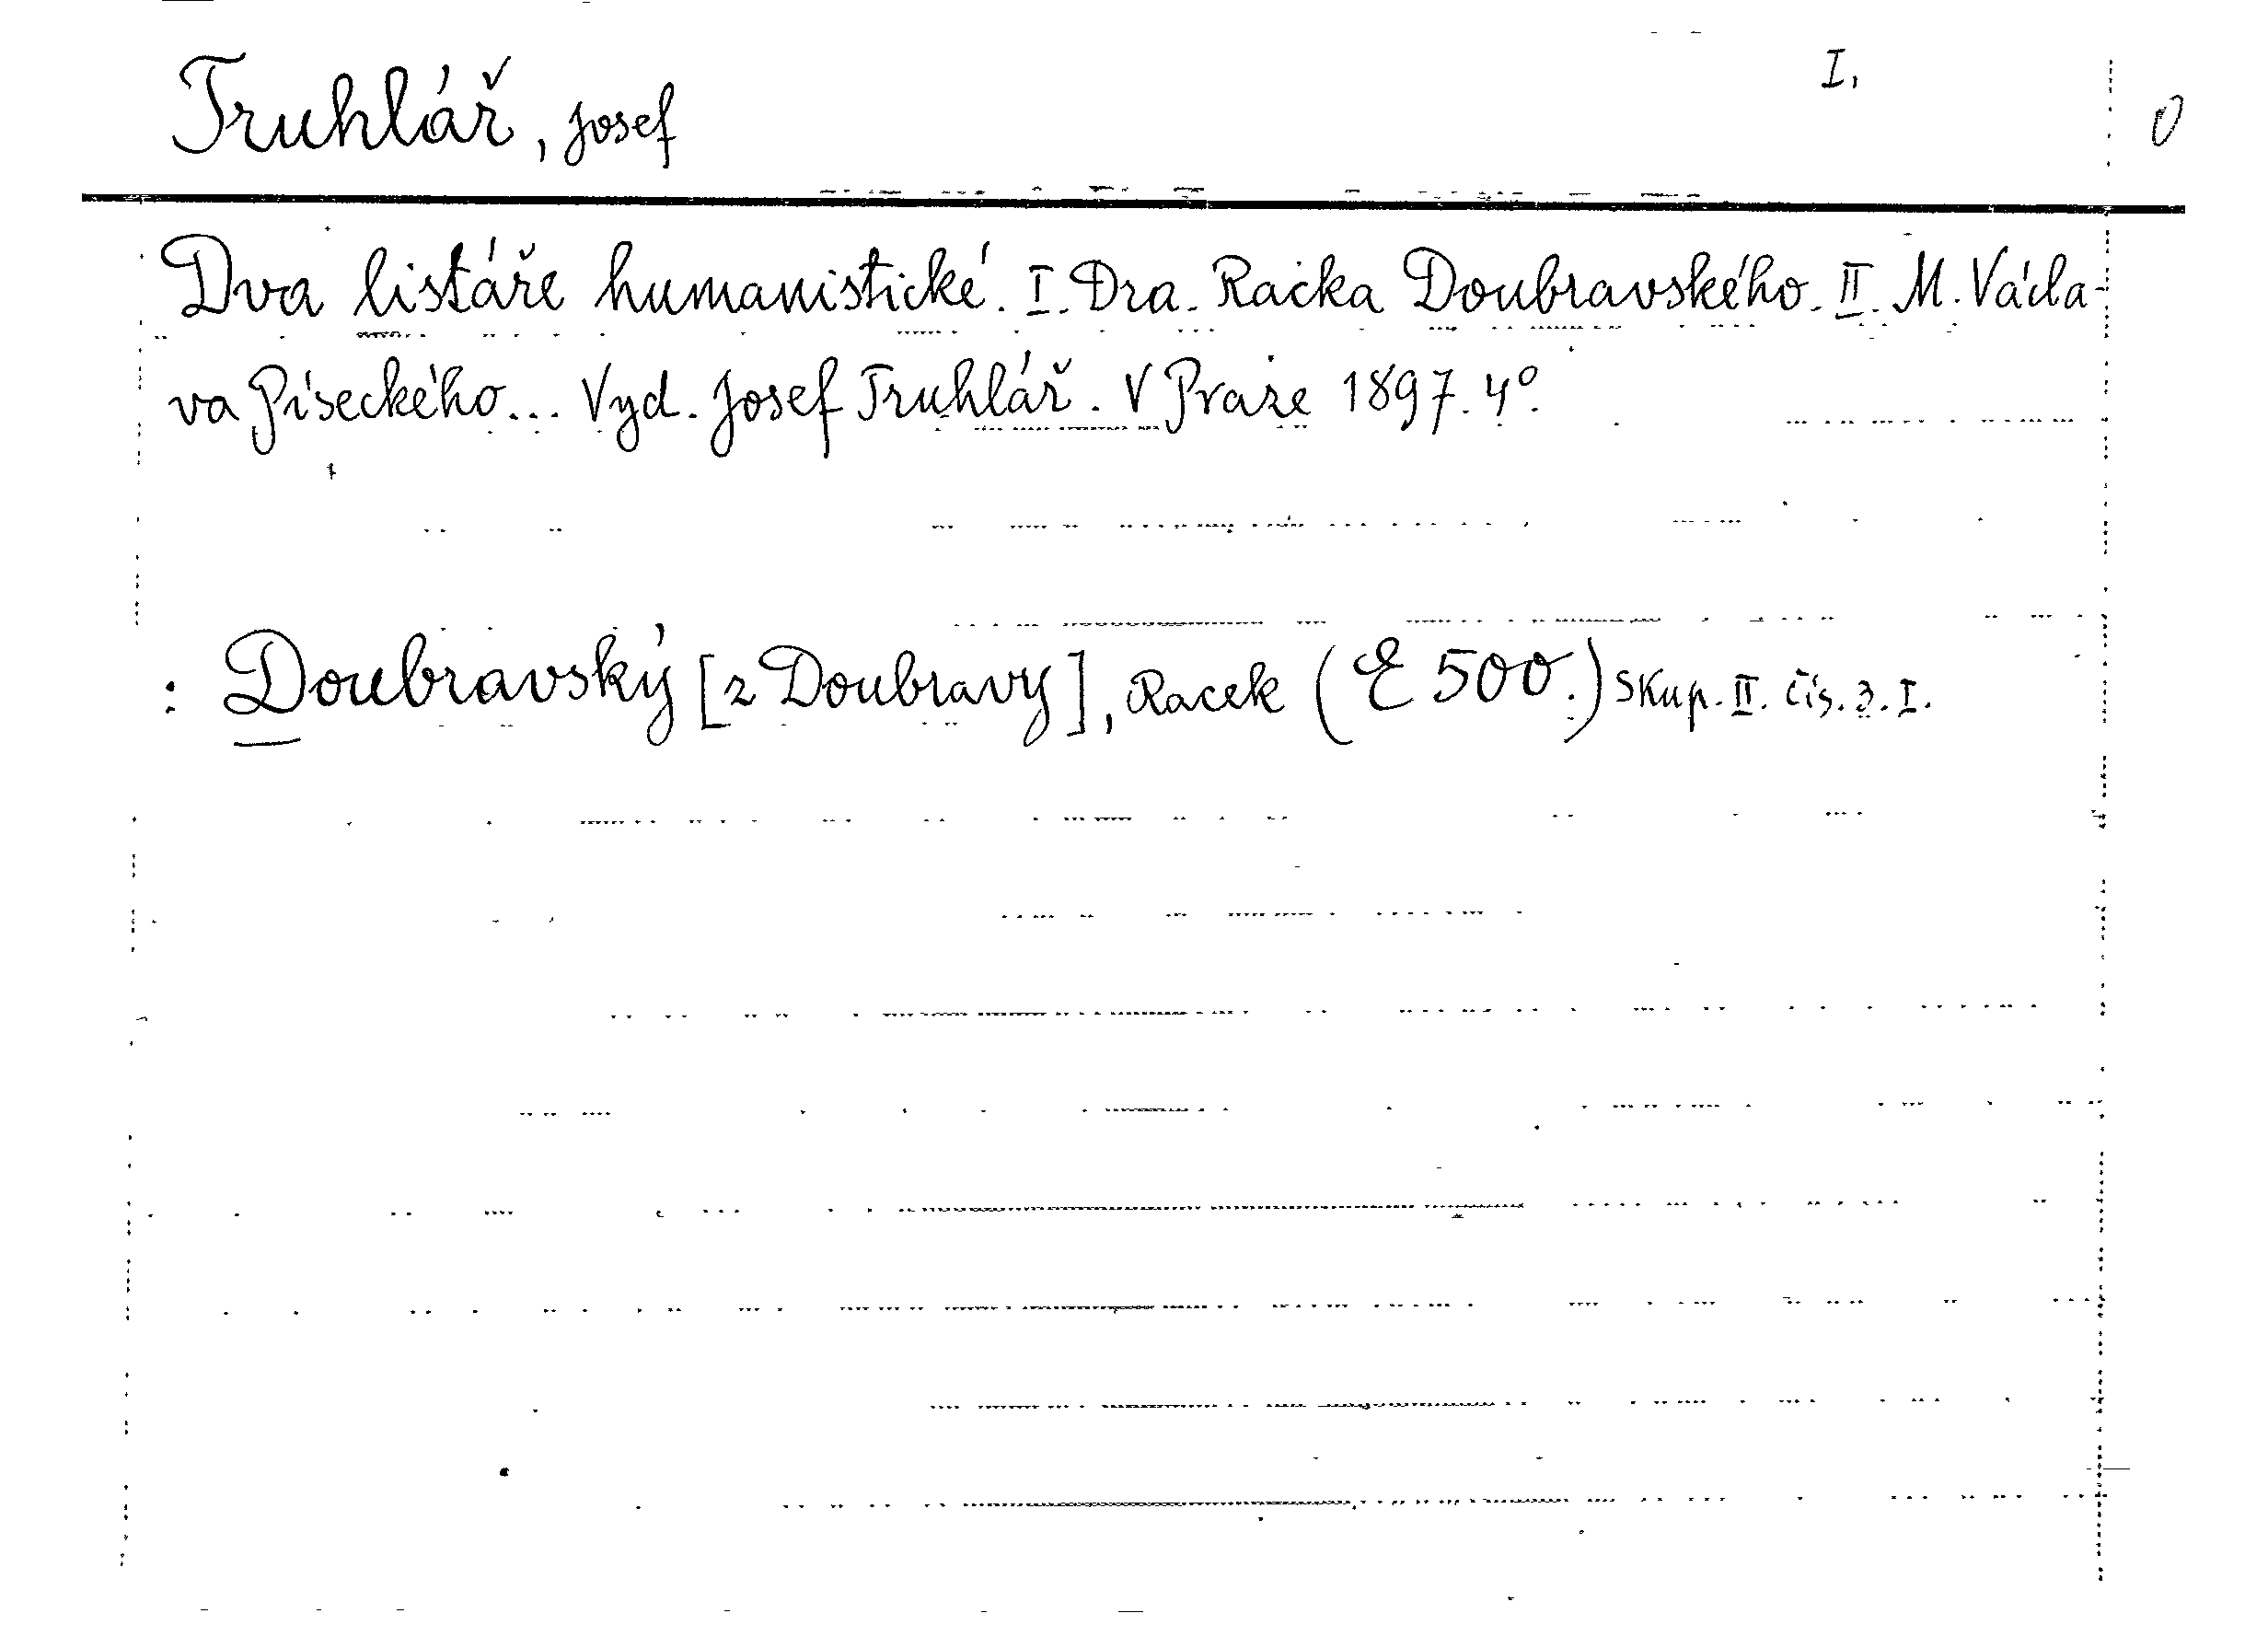 Truhlář, Josef I. 0
Dva listáře humanistické. I. Dra. Račka Doubravského. II. M. Václa-
va Píseckého... Vyd. Josef Truhlář. V Praze 1897. 4º.
: Doubravský [z Doubravy], Racek (E 500.) Skup. II. čís. 3. I.